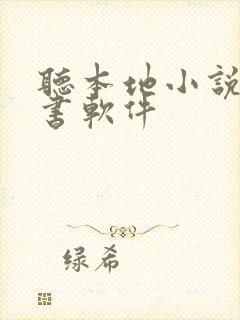 聽本地小說
書軟件
绿希